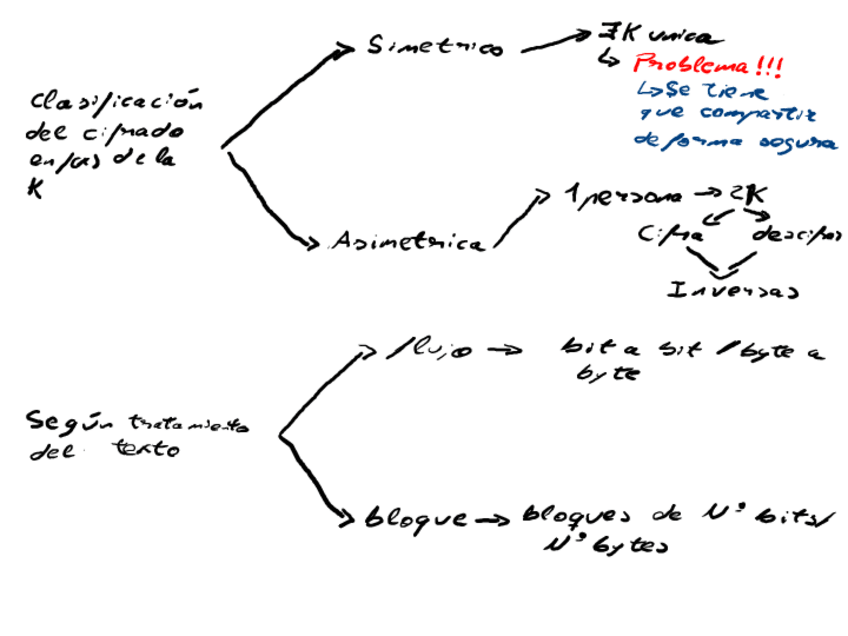 Clasificación
del cifrado
en fas de la
K
Simetrico
∃K unica
Problema!!!
Se tiene
que compartir
de forma segura
Asimetrica
1 persona → 2K
Cifra
descifra
Inversas
Según tratamiento
del texto
flujo → bit a bit / byte a
byte
bloque → bloques de Nº bits/
Nº bytes